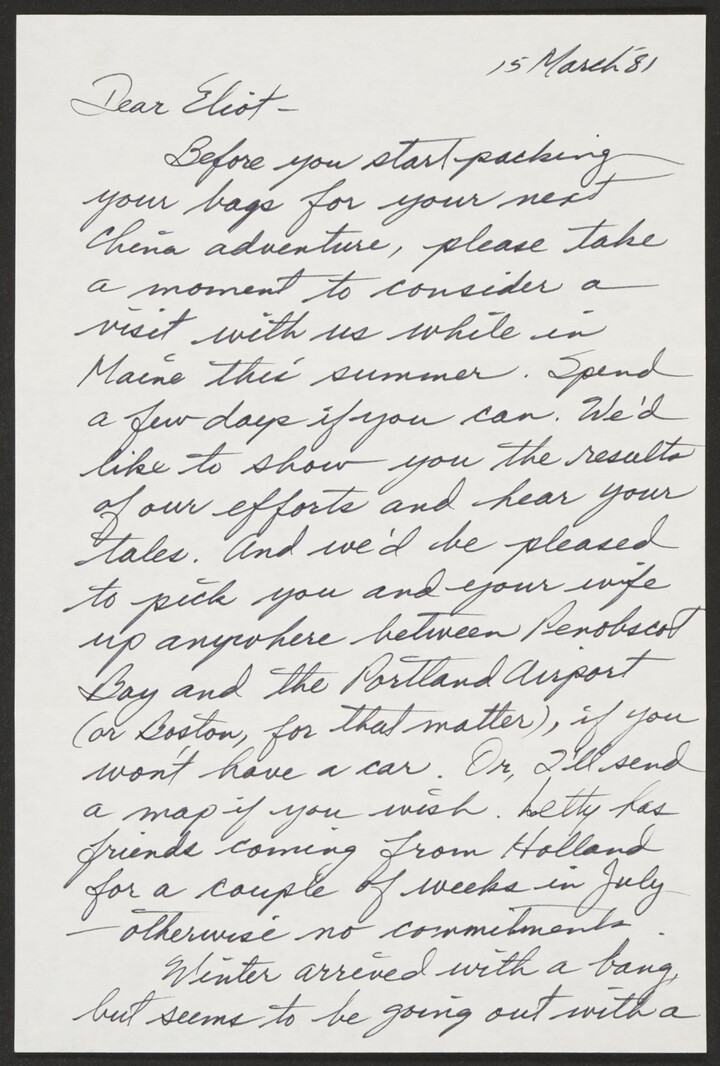 15 March '81
Dear Eliot –
Before you start packing
your bags for your next
China adventure, please take
a moment to consider a
visit with us while in
Maine this summer. Spend
a few days if you can. We'd
like to show you the results
of our efforts and hear your
tales. And we'd be pleased
to pick you and your wife
up anywhere between Penobscot
Bay and the Portland Airport
(or Boston, for that matter), if you
won't have a car. Or, I'll send
a map if you wish. Letty has
friends coming from Holland
for a couple of weeks in July
– otherwise no commitments.
Winter arrived with a bang,
but seems to be going out with a